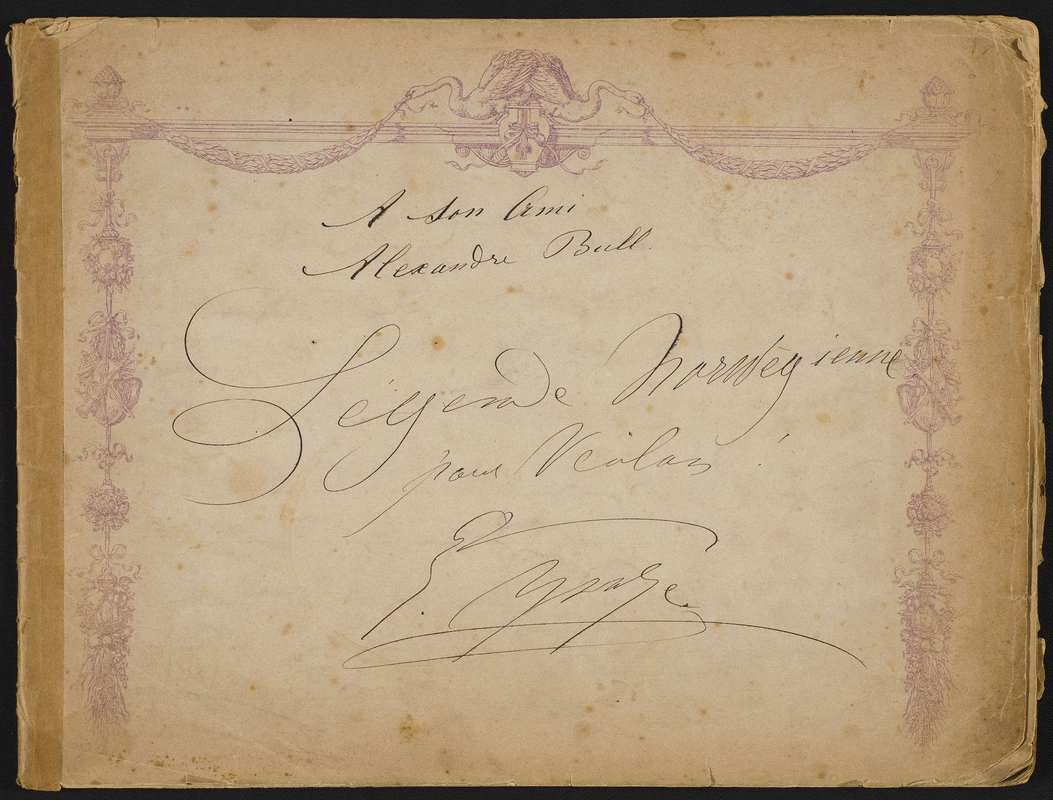 A son Ami
Alexandre Bull.
Légende Norwégienne
pour Violon
E Ysaÿe